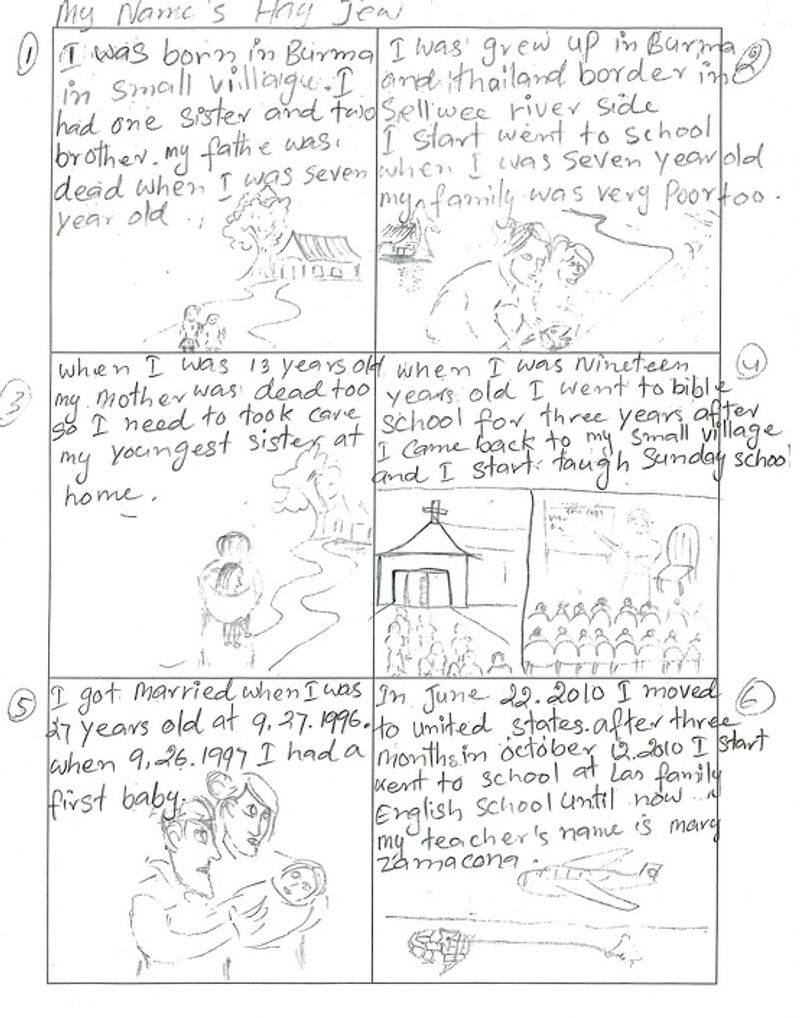 My Name's Hay Jew
1
I was born in Burma
in small villiage. I
had one sister and two
brother. my fathe was
dead when I was seven
year old.
2
I was grew up in Burma
and thailand border in
Sellwee river side
I start went to school
when I was seven year old
my family was very Poor too.
3
when I was 13 years old
my mother was dead too
so I need to took care
my youngest sister at
home.
4
when I was Nineteen
years old I went to bible
school for three years after
I came back to my small village
and I start taugh Sunday school
5
I got married when I was
27 years old at 9.27.1996.
when 9.26.1997 I had a
first baby.
6
In June 22.2010 I moved
to united states.after three
months,in october 12.2010 I start
went to school at Las family
English school until now...
my teacher's name is mary
zamacona.